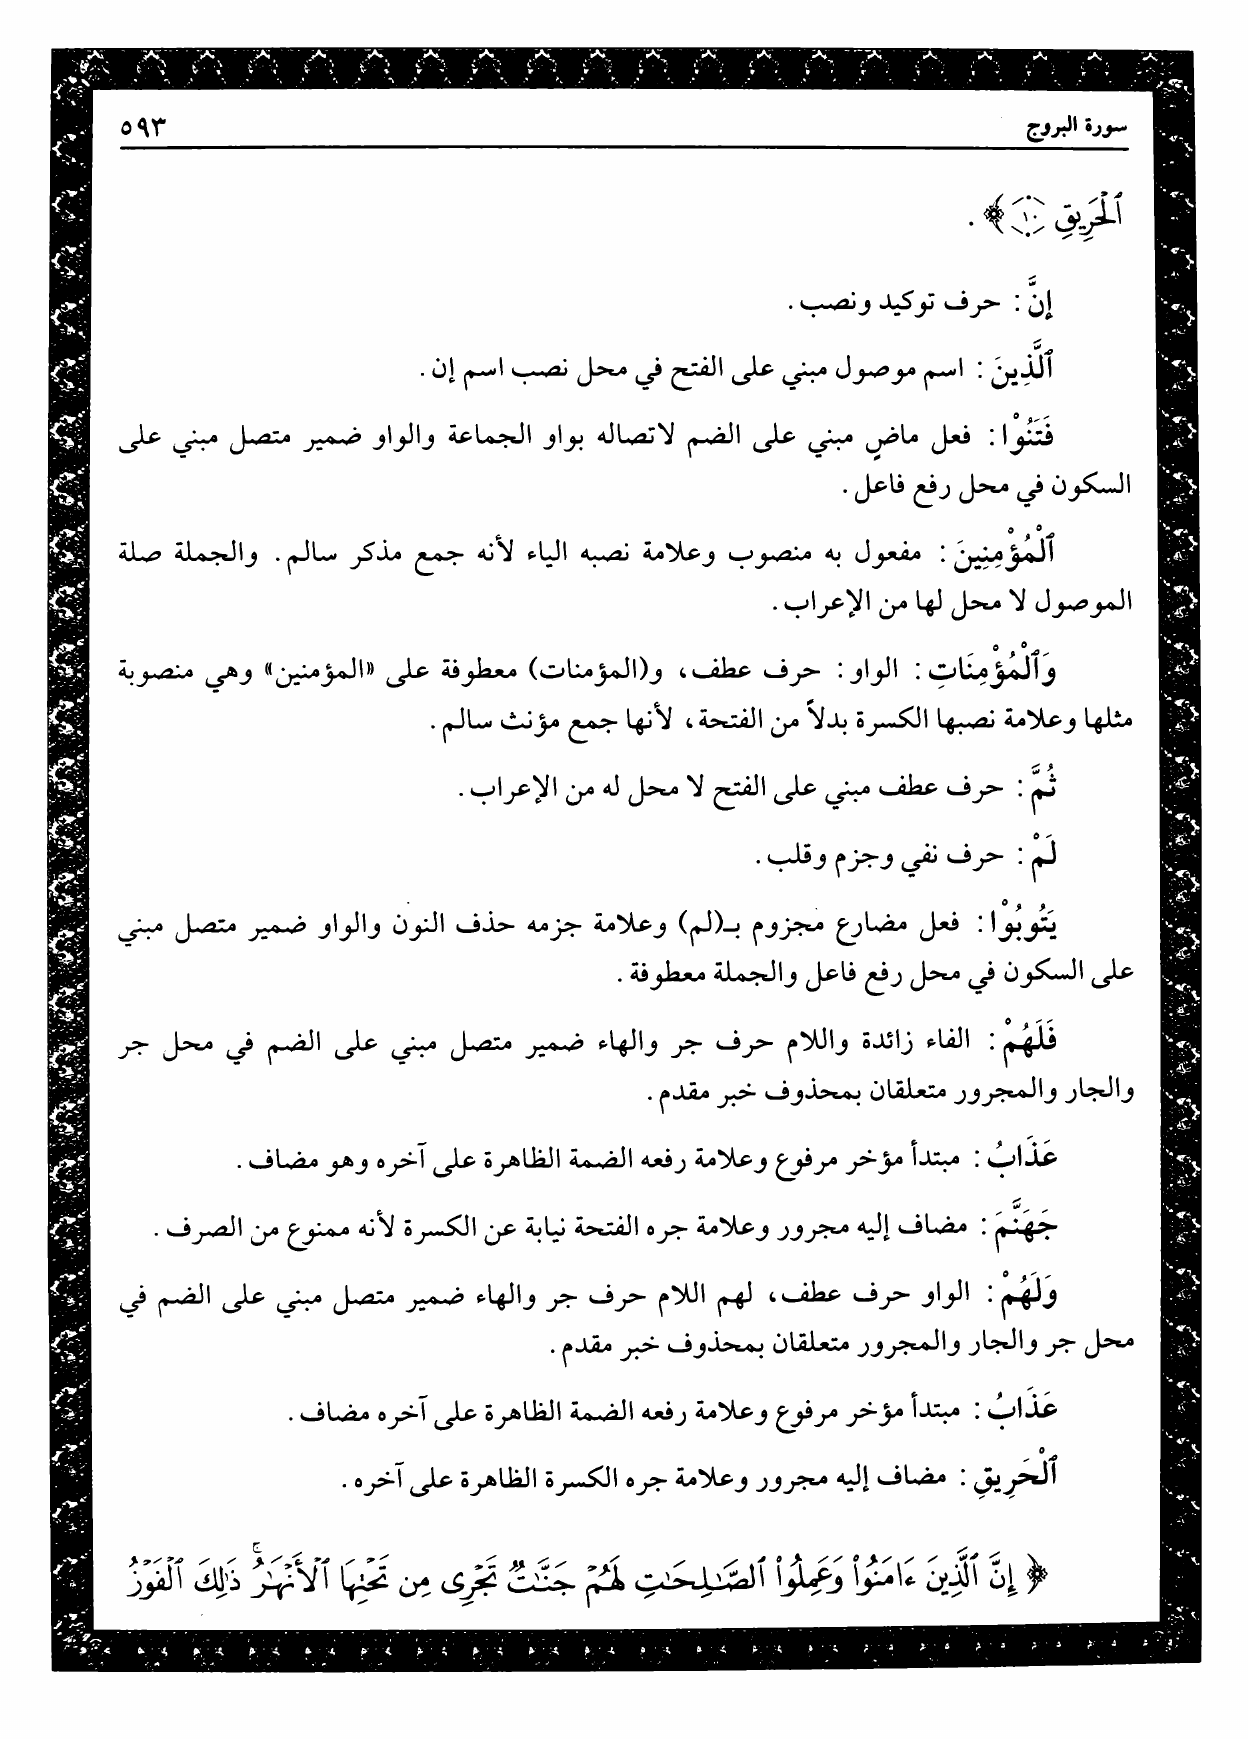 سورة البروج ٥٩٣
ٱلْحَرِيقِ ۝١٠ ﴾ .
إنَّ : حرف توكيد ونصب .
ٱلَّذِينَ : اسم موصول مبني على الفتح في محل نصب اسم إن .
فَتَنُوْا : فعل ماضٍ مبني على الضم لاتصاله بواو الجماعة والواو ضمير متصل مبني على
السكون في محل رفع فاعل .
ٱلْمُؤْمِنِينَ : مفعول به منصوب وعلامة نصبه الياء لأنه جمع مذكر سالم . والجملة صلة
الموصول لا محل لها من الإعراب .
وَٱلْمُؤْمِنَاتِ : الواو : حرف عطف ، و(المؤمنات) معطوفة على «المؤمنين» وهي منصوبة
مثلها وعلامة نصبها الكسرة بدلاً من الفتحة ، لأنها جمع مؤنث سالم .
ثُمَّ : حرف عطف مبني على الفتح لا محل له من الإعراب .
لَمْ : حرف نفي وجزم وقلب .
يَتُوبُوْا : فعل مضارع مجزوم بـ(لم) وعلامة جزمه حذف النون والواو ضمير متصل مبني
على السكون في محل رفع فاعل والجملة معطوفة .
فَلَهُمْ : الفاء زائدة واللام حرف جر والهاء ضمير متصل مبني على الضم في محل جر
والجار والمجرور متعلقان بمحذوف خبر مقدم .
عَذَابُ : مبتدأ مؤخر مرفوع وعلامة رفعه الضمة الظاهرة على آخره وهو مضاف .
جَهَنَّمَ : مضاف إليه مجرور وعلامة جره الفتحة نيابة عن الكسرة لأنه ممنوع من الصرف .
وَلَهُمْ : الواو حرف عطف ، لهم اللام حرف جر والهاء ضمير متصل مبني على الضم في
محل جر والجار والمجرور متعلقان بمحذوف خبر مقدم .
عَذَابُ : مبتدأ مؤخر مرفوع وعلامة رفعه الضمة الظاهرة على آخره مضاف .
ٱلْحَرِيقِ : مضاف إليه مجرور وعلامة جره الكسرة الظاهرة على آخره .
﴿ إِنَّ ٱلَّذِينَ ءَامَنُوا۟ وَعَمِلُوا۟ ٱلصَّـٰلِحَـٰتِ لَهُمْ جَنَّـٰتٌ تَجْرِى مِن تَحْتِهَا ٱلْأَنْهَـٰرُ ۚ ذَٰلِكَ ٱلْفَوْزُ